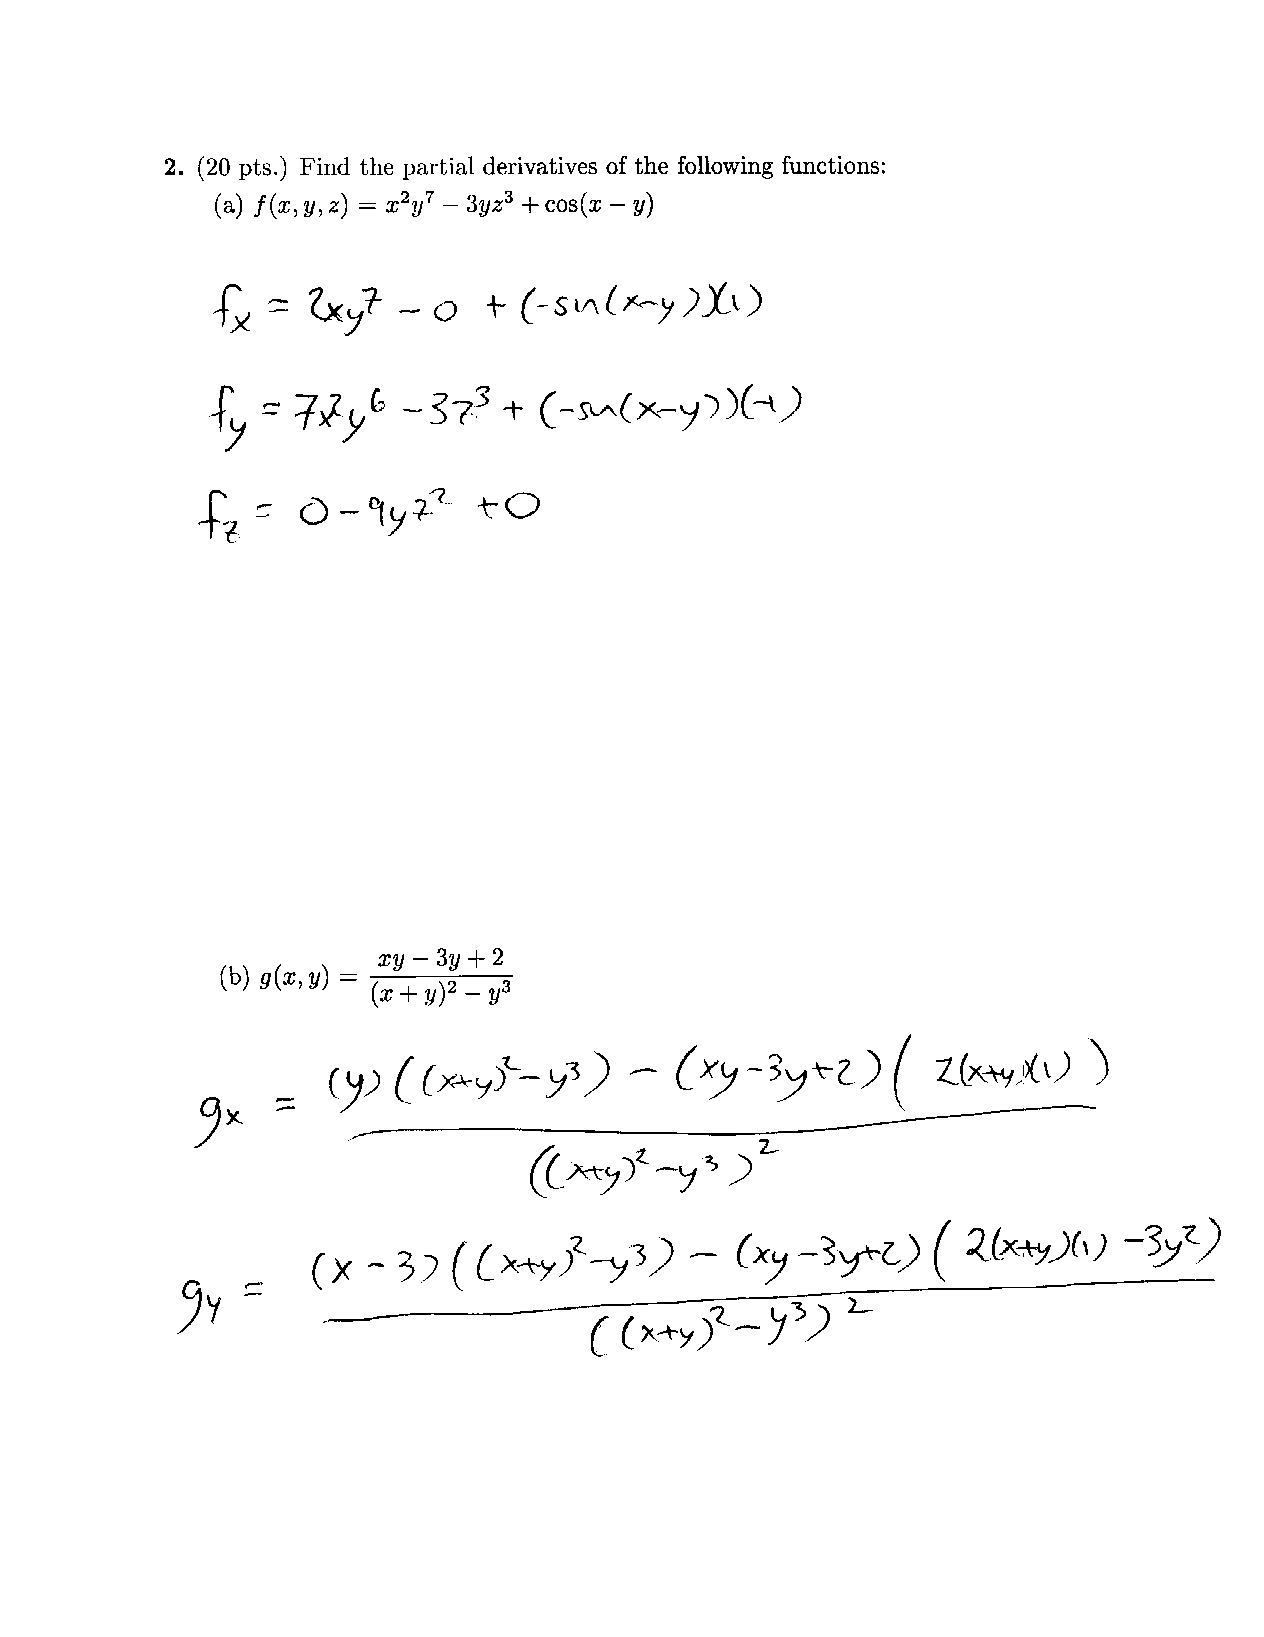 2. (20 pts.) Find the partial derivatives of the following functions:
(a) f(x, y, z) = x²y⁷ − 3yz³ + cos(x − y)
fₓ = 2xy⁷ − 0 + (-sin(x-y))(1)
f_y = 7x²y⁶ − 3z³ + (-sin(x-y))(-1)
f_z = 0 − 9yz² + 0
(b) g(x, y) = (xy − 3y + 2) / ((x + y)² − y³)
gₓ = ((y)((x+y)² − y³) − (xy − 3y + 2)(2(x+y)(1))) / ((x+y)² − y³)²
g_y = ((x − 3)((x+y)² − y³) − (xy − 3y + 2)(2(x+y)(1) − 3y²)) / ((x+y)² − y³)²